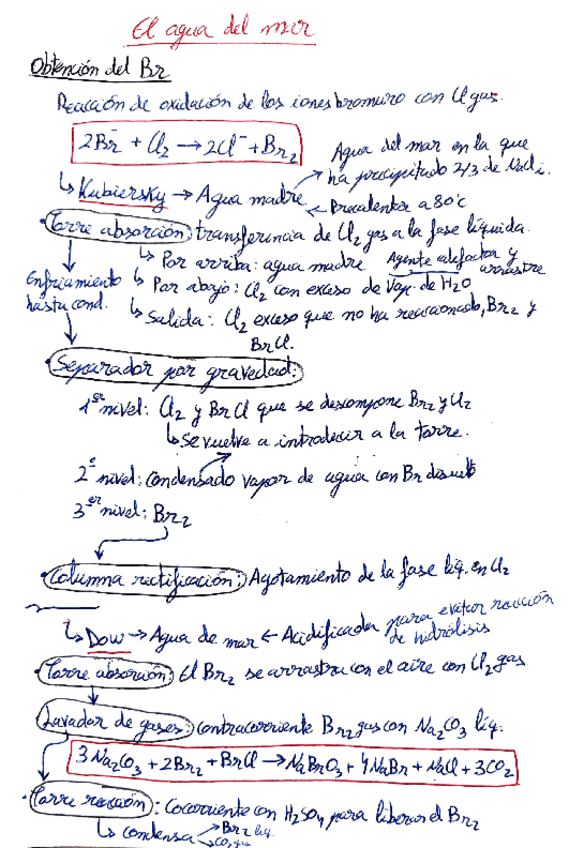 El agua del mar
Obtención del Br
Reacción de oxidación de los iones bromuro con Cl gas.
2Br⁻ + Cl₂ → 2Cl⁻ + Br₂
Agua del mar en la que
ha precipitado 2/3 de NaCl.
↳ Kubiersky → Agua madre
← Precalentar a 80°C
· Torre absorción: transferencia de Cl₂ gas a la fase líquida.
↳ Por arriba: agua madre
Agente calefactor y
arrastre
Enfriamiento
hasta cond.
↳ Por abajo: Cl₂ con exceso de Vap. de H₂O
↳ Salida: Cl₂ exceso que no ha reaccionado, Br₂ y
BrCl.
· Separador por gravedad:
1er nivel: Cl₂ y BrCl que se descompone Br₂ y Cl₂
↳ se vuelve a introducir a la torre.
2º nivel: condensado vapor de agua con Br disuelto
3er nivel: Br₂
· Columna rectificación: Agotamiento de la fase líq. en Cl₂
↳ Dow → Agua de mar ← Acidificada para evitar reacción
de hidrólisis
· Torre absorción: El Br₂ se arrastra con el aire con Cl₂ gas
Lavador de gases: contracorriente Br₂ gas con Na₂CO₃ líq.
3Na₂CO₃ + 2Br₂ + BrCl → NaBrO₃ + 4NaBr + NaCl + 3CO₂
· Torre reacción: Cocorriente con H₂SO₄ para liberar el Br₂
↳ condensa → Br₂ líq.
→ CO₂ gas